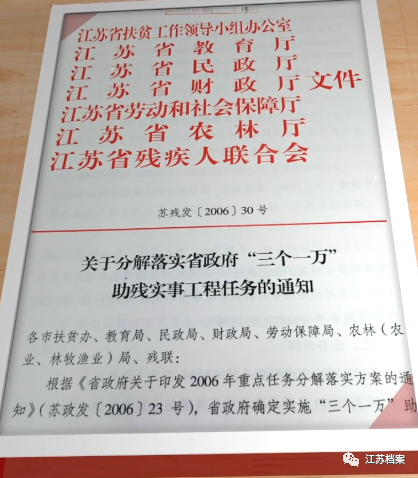 江苏省扶贫工作领导小组办公室
江苏省教育厅
江苏省民政厅
江苏省财政厅文件
江苏省劳动和社会保障厅
江苏省农林厅
江苏省残疾人联合会
苏残发〔2006〕30号
关于分解落实省政府“三个一万”
助残实事工程任务的通知
各市扶贫办、教育局、民政局、财政局、劳动保障局、农林（农
业、林牧渔业）局、残联：
根据《省政府关于印发2006年重点任务分解落实方案的通
知》（苏政发〔2006〕23号），省政府确定实施“三个一万”助
江苏档案